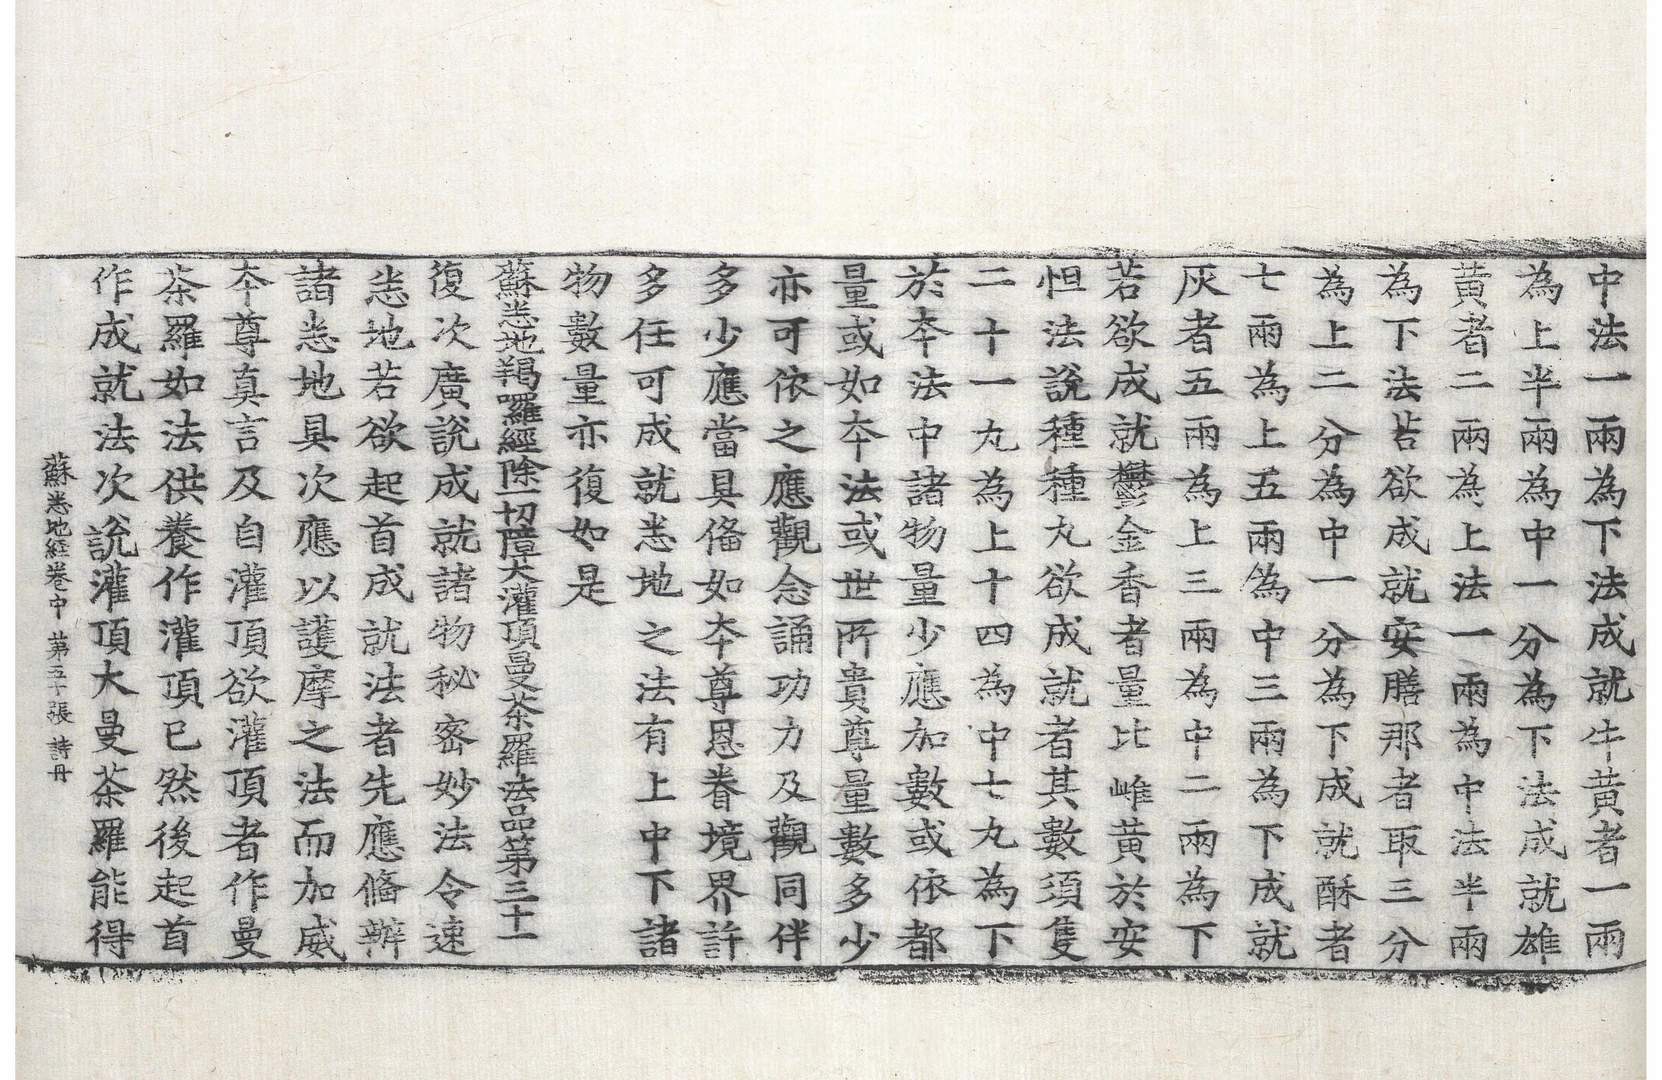 中法一兩為下法成就牛黃者一兩
為上半兩為中一分為下法成就雄
黃者二兩為上法一兩為中法半兩
為下法若欲成就安膳那者取三分
為上二分為中一分為下成就酥者
七兩為上五兩為中三兩為下成就
灰者五兩為上三兩為中二兩為下
若欲成就鬱金香者量比雌黃於安
怛法說種種丸欲成就者其數須隻
二十一丸為上十四為中七丸為下
於夲法中諸物量少應加數或依都
量或如夲法或世所貴尊量數多少
亦可依之應觀念誦功力及觀同伴
多少應當具俻如夲尊恩眷境界許
多任可成就悉地之法有上中下諸
物數量亦復如是
蘇悉地羯囉經除一切障大灌頂曼茶羅法品第三十一
復次廣說成就諸物秘密妙法令速
悉地若欲起首成就法者先應俻辦
諸悉地具次應以護摩之法而加威
夲尊真言及自灌頂欲灌頂者作曼
茶羅如法供養作灌頂已然後起首
作成就法次說灌頂大曼茶羅能得
蘇悉地經卷中 第五十張 詩丹